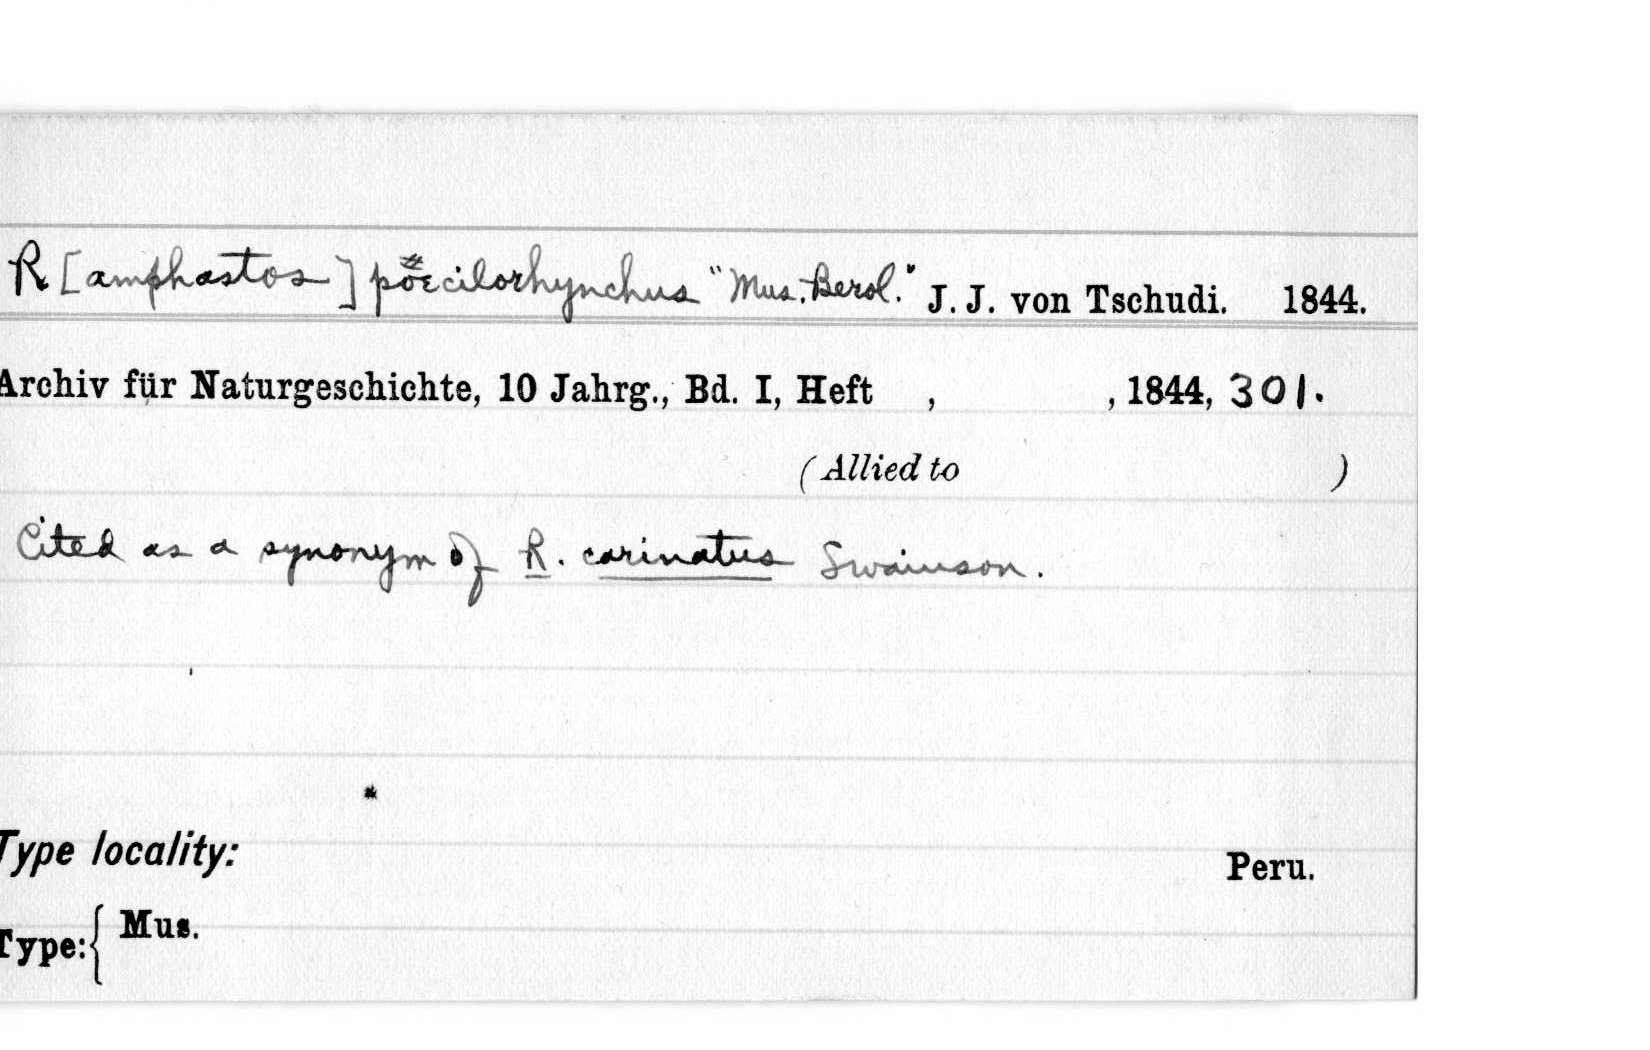 R[amphastos] poecilorhynchus "Mus. Berol." J. J. von Tschudi. 1844.
Archiv für Naturgeschichte, 10 Jahrg., Bd. I, Heft , , 1844, 301.
(Allied to )
Cited as a synonym of R. carinatus Swainson.
Type locality: Peru.
Type: { Mus.